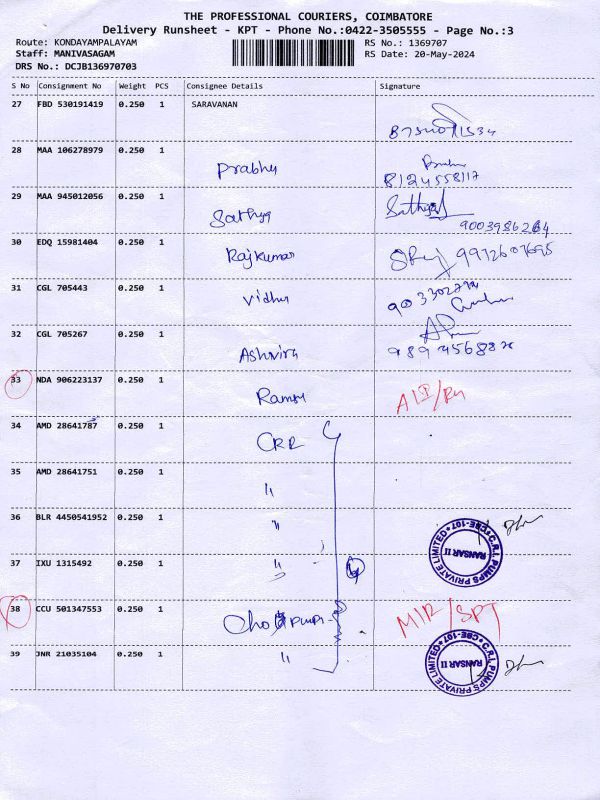 THE PROFESSIONAL COURIERS, COIMBATORE
Delivery Runsheet - KPT - Phone No.:0422-3505555 - Page No.:3
Route: KONDAYAMPALAYAM RS No.: 1369707
Staff: MANIVASAGAM RS Date: 20-May-2024
DRS No.: DCJB136970703
S No Consignment No Weight PCS Consignee Details Signature
27 FBD 530191419 0.250 1 SARAVANAN
28 MAA 106278979 0.250 1 Prabhu
8124558117
29 MAA 945012056 0.250 1 Sathya Sathya
30 EDQ 15981404 0.250 1 Rajkumar
31 CGL 705443 0.250 1 Vidhu
32 CGL 705267 0.250 1 Ashwin
33 NDA 906223137 0.250 1 Ramu
34 AMD 28641787 0.250 1 CRR
35 AMD 28641751 0.250 1 "
36 BLR 4450541952 0.250 1 "
C.R.I. PUMPS PRIVATE LIMITED CBE-107 RANSAR II
37 IXU 1315492 0.250 1 "
38 CCU 501347553 0.250 1 MIR/SPT
39 JNR 21035104 0.250 1 "
C.R.I. PUMPS PRIVATE LIMITED CBE-107 RANSAR II